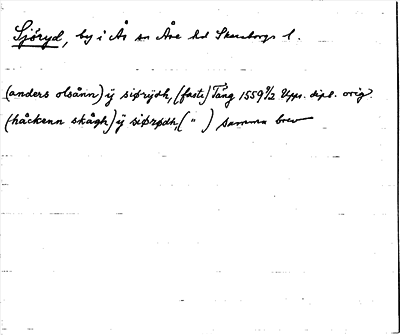 Sjöryd, by i Ås sn Åse hd Skaraborgs l.
(anders olsånn) ÿ siørÿdh, (faste) Tång 1559 9/2 Upps. dipl. orig.
(håckenn skågh) ÿ siørødh, ( " ) samma brev